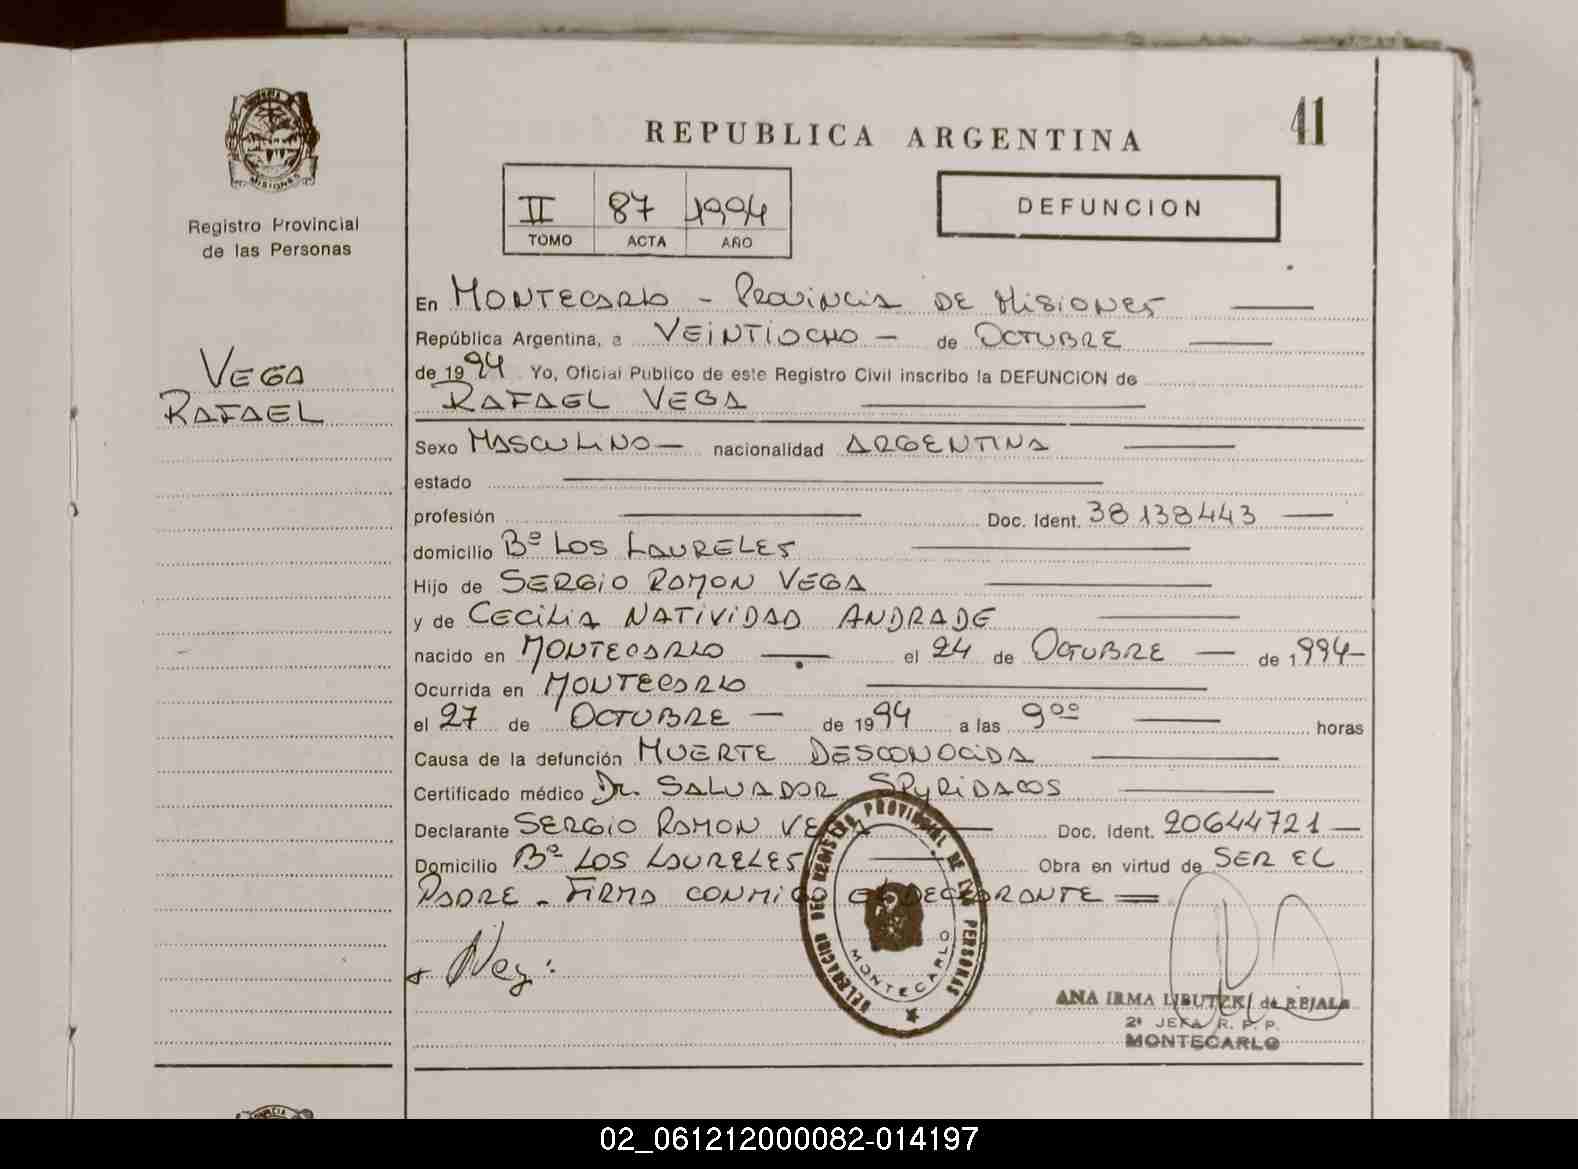 41
REPUBLICA ARGENTINA
MISIONES
Registro Provincial
de las Personas
II 87 1994
TOMO ACTA AÑO
DEFUNCION
VEGA
RAFAEL
En MONTECARLO - PROVINCIA DE MISIONES
República Argentina, a VEINTIOCHO - de OCTUBRE
de 1994 Yo, Oficial Publico de este Registro Civil inscribo la DEFUNCION de
RAFAEL VEGA
Sexo MASCULINO - nacionalidad ARGENTINA
estado
profesión Doc. Ident. 38138443
domicilio Bº LOS LAURELES
Hijo de SERGIO RAMON VEGA
y de CECILIA NATIVIDAD ANDRADE
nacido en MONTECARLO el 24 de OCTUBRE - de 1994-
Ocurrida en MONTECARLO
el 27 de OCTUBRE - de 1994 a las 9ºº horas
Causa de la defunción MUERTE DESCONOCIDA
Certificado médico Dr. SALVADOR SPYRIDACOS
Declarante SERGIO RAMON VEGA Doc. Ident. 20644721
Domicilio Bº LOS LAURELES Obra en virtud de SER EL
PADRE - FIRMA CONMIGO EL DECLARANTE =
DELEGACION DEL REGISTRO PROVINCIAL DE LAS PERSONAS
MONTECARLO
ANA IRMA LIBUTZKI de REJALA
2ª JEFA R. P. P.
MONTECARLO
02_061212000082-014197